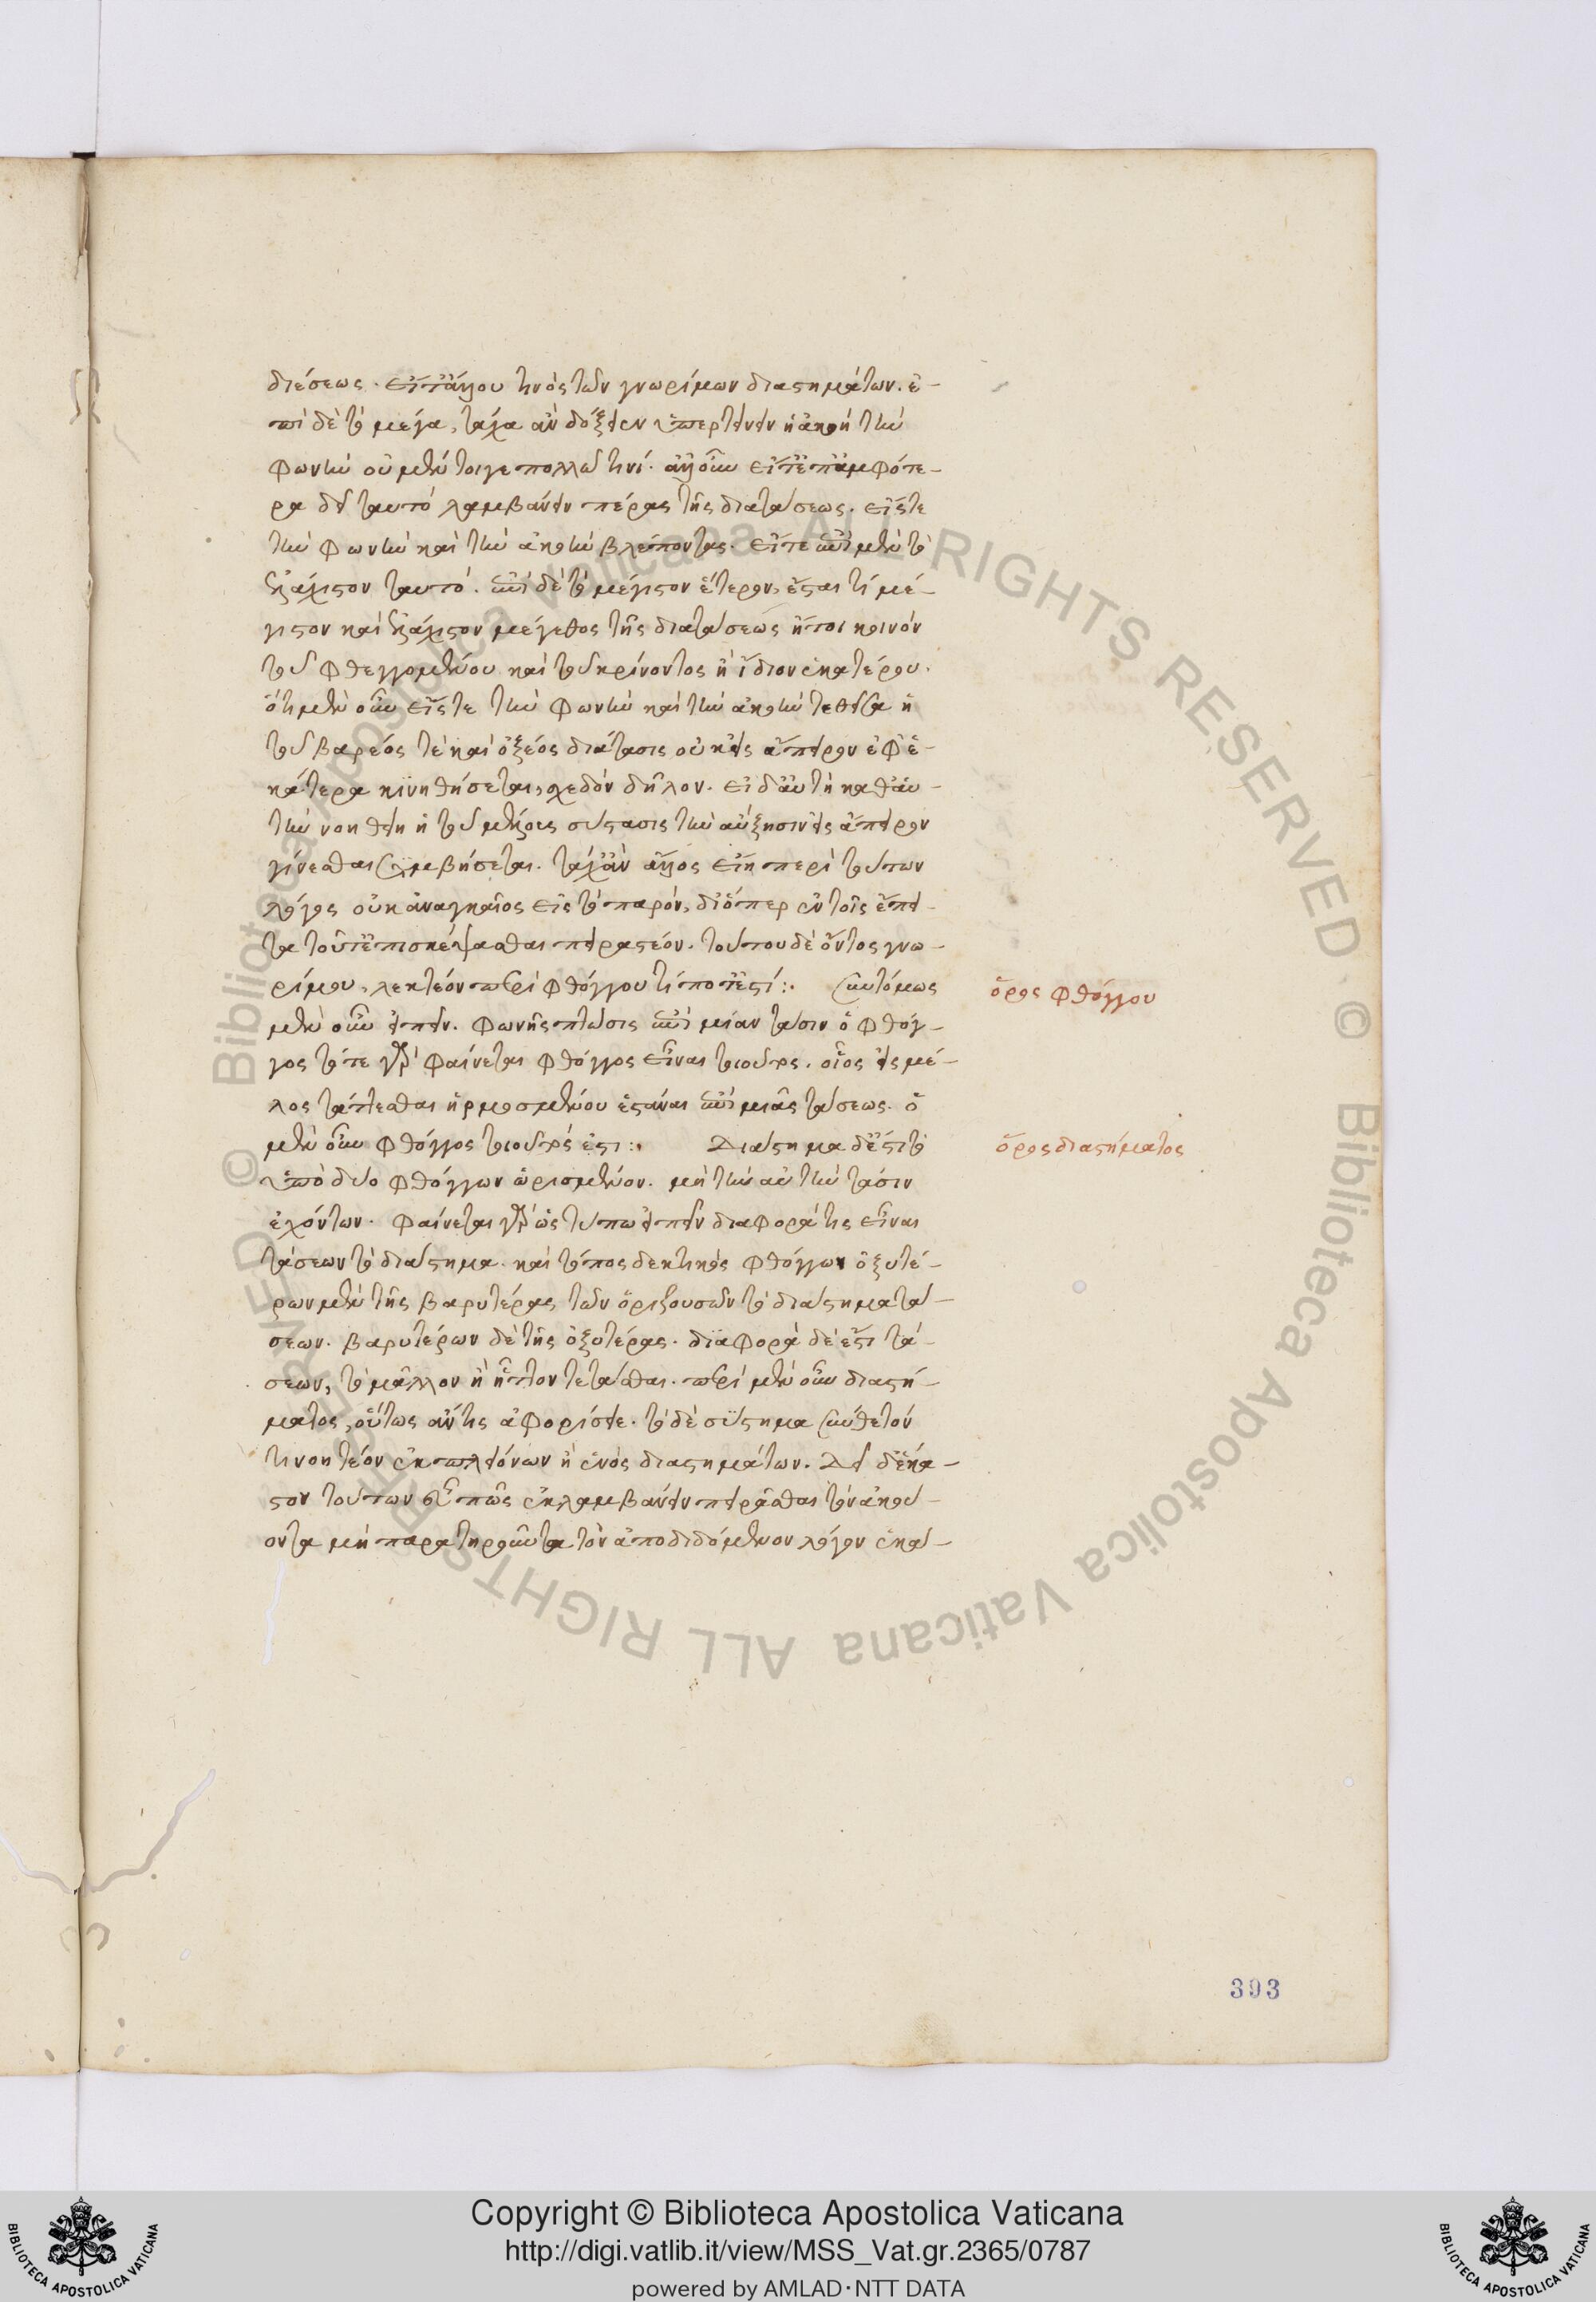 διέσεως. εἴτ' ἄλλου τινὸς τῶν γνωρίμων διαστημάτων. ἐ-
πὶ δὲ τὸ μέγα, τάχα ἂν δόξειεν ὑπερτείνειν ἡ ἀκοὴ τὴν
φωνὴν οὐ μέντοι γε πολλῷ τινί. ἀλλ' οὖν εἴτ' ἐπ' ἀμφότε-
ρα δεῖ ταυτὸ λαμβάνειν πέρας τῆς διατάσεως. εἴς τε
τὴν φωνὴν καὶ τὴν ἀκοὴν βλέποντας. εἴτε ἐπὶ μὲν τὸ
ἐλάχιστον ταυτό. ἐπὶ δὲ τὸ μέγιστον ἕτερον, ἔσται τί μέ-
γιστον καὶ ἐλάχιστον μέγεθος τῆς διατάσεως ἤτοι κοινὸν
τοῦ φθεγγομένου καὶ τοῦ κρίνοντος ἢ ἴδιον ἑκατέρου.
ὅτι μὲν οὖν εἴς τε τὴν φωνὴν καὶ τὴν ἀκοὴν τεθεῖσα ἡ
τοῦ βαρέος τὲ καὶ ὀξέος διάτασις οὐκ εἰς ἄπειρον ἐφ' ἑ-
κάτερα κινηθήσεται, σχεδὸν δῆλον. εἰ δ' αὐτὴ καθ' αὑ-
τὴν νοηθείη ἡ τοῦ μέλους σύστασις τὴν αὔξησιν εἰς ἄπειρον
γίνεσθαι συμβήσεται. τάχ' ἂν ἄλλος εἴη περὶ τούτων
λόγος οὐκ ἀναγκαῖος εἰς τὸ παρόν, διόπερ ἐν τοῖς ἔπει-
τα τοῦτ' ἐπισκέψασθαι πειρατέον. τούτου δὲ ὄντος γνω-
ρίμου, λεκτέον περὶ φθόγγου τί ποτ' ἐστί:. συντόμως
ὅρος φθόγγου
μὲν οὖν εἰπεῖν. φωνῆς πτῶσις ἐπὶ μίαν τάσιν ὁ φθόγ-
γος τότε γὰρ φαίνεται φθόγγος εἶναι τοιοῦτος. οἷος εἰς μέ-
λος τάττεσθαι ἡρμοσμένου ἑστάναι ἐπὶ μιᾶς τάσεως. ὁ
μὲν οὖν φθόγγος τοιοῦτός ἐστι:. Διάστημα δ' ἐστὶ τὸ
ὅρος διαστήματος
ὑπὸ δύο φθόγγων ὡρισμένον. μὴ τὴν αὐτὴν τάσιν
ἐχόντων. φαίνεται γὰρ ὡς τύπῳ εἰπεῖν διαφορά τις εἶναι
τάσεων τὸ διάστημα. καὶ τόπος δεκτικὸς φθόγγων ὀξυτέ-
ρων μὲν τῆς βαρυτέρας τῶν ὁριζουσῶν τὸ διάστημα τά-
σεων. βαρυτέρων δὲ τῆς ὀξυτέρας. διαφορὰ δὲ ἐστὶ τά-
σεων, τὸ μᾶλλον ἢ ἧττον τετάσθαι. περὶ μὲν οὖν διαστή-
ματος, οὕτως ἄν τις ἀφορίσειε. τὸ δὲ σύστημα σύνθετόν
τι νοητέον ἐκ πλειόνων ἢ ἑνὸς διαστημάτων. Δεῖ δ' ἕκα-
στον τούτων εὖ πῶς ἐκλαμβάνειν πειρᾶσθαι τὸν ἀκού-
οντα μὴ παρατηροῦντα τὸν ἀποδιδόμενον λόγον ἑκά-
393
Copyright © Biblioteca Apostolica Vaticana
http://digi.vatlib.it/view/MSS_Vat.gr.2365/0787
powered by AMLAD·NTT DATA